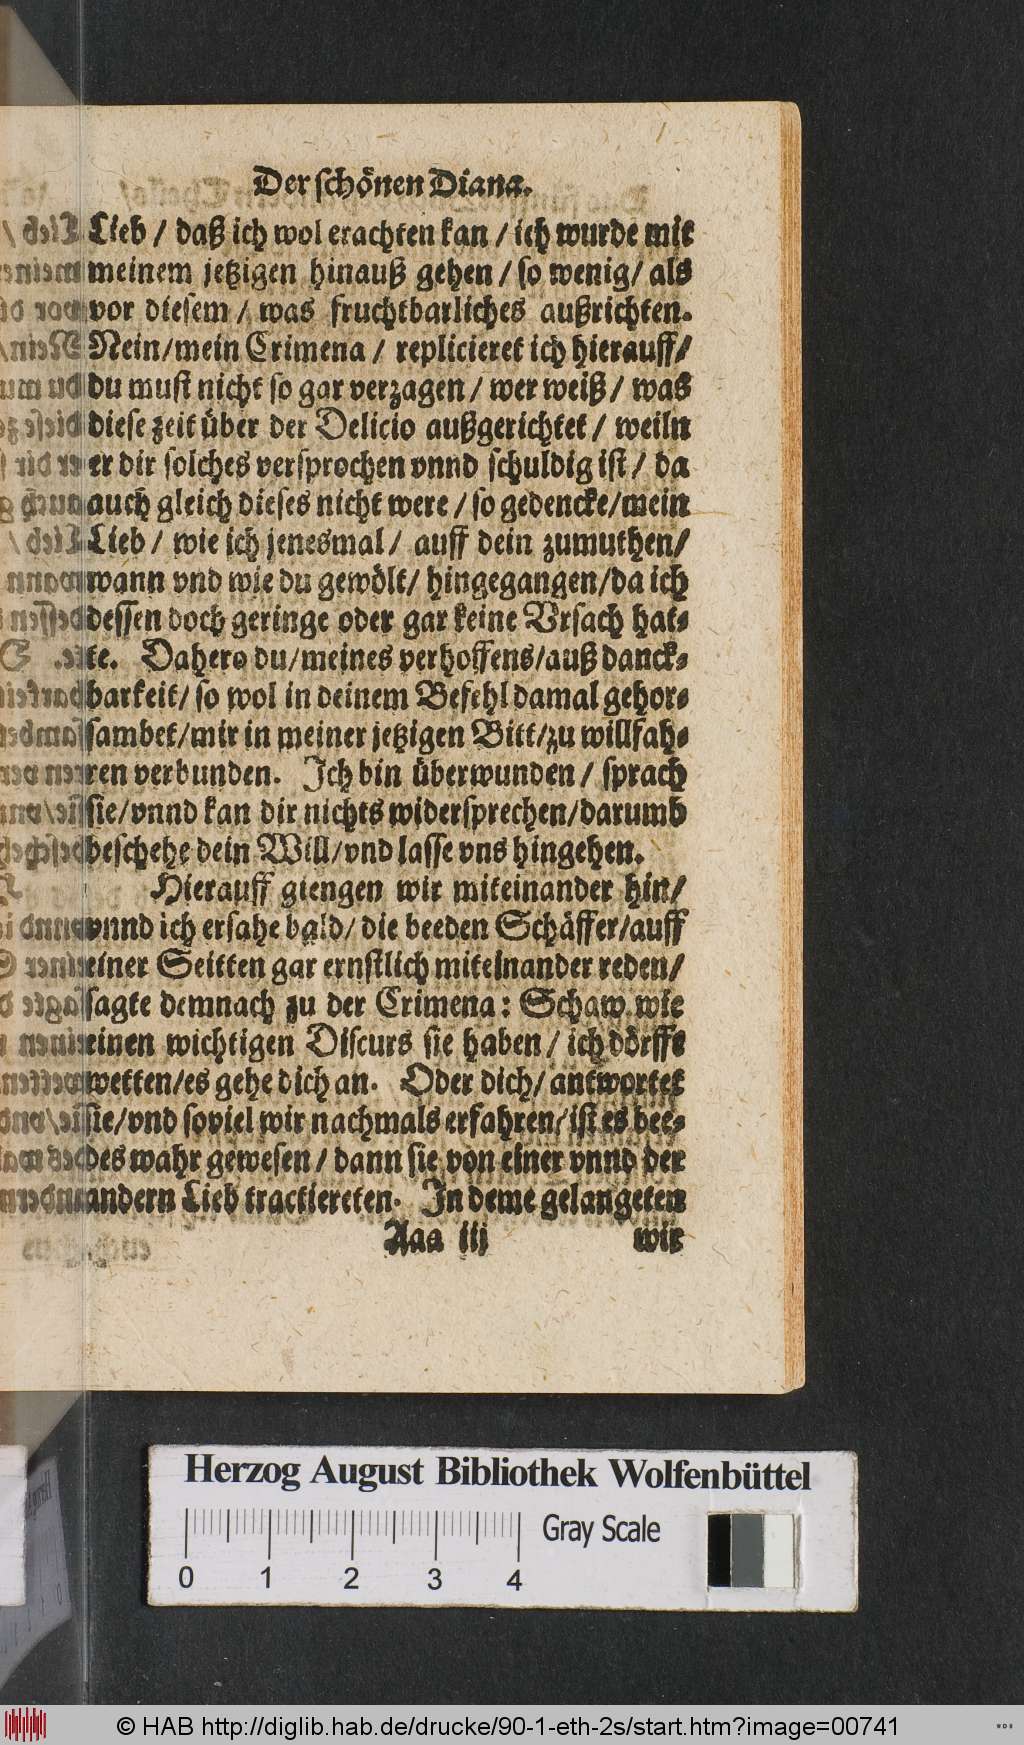 Der schönen Diana.
Lieb / daß ich wol erachten kan / ich wurde mit
meinem jetzigen hinauß gehen / so wenig / als
vor diesem / was fruchtbarliches außrichten.
Nein / mein Crimena / replicieret ich hierauff /
du must nicht so gar verzagen / wer weiß / was
diese zeit über der Delicio außgerichtet / weiln
er dir solches versprochen vnnd schuldig ist / da
auch gleich dieses nicht were / so gedencke / mein
Lieb / wie ich jenesmal / auff dein zumuthen /
wann vnd wie du gewölt / hingegangen / da ich
dessen doch geringe oder gar keine Vrsach hat-
te. Dahero du / meines verhoffens / auß danck-
barkeit / so wol in deinem Befehl damal gehor-
sambet / mir in meiner jetzigen Bitt / zu willfah-
ren verbunden. Ich bin überwunden / sprach
sie / vnnd kan dir nichts widersprechen / darumb
beschehe dein Will / vnd lasse vns hingehen.
Hierauff giengen wir miteinander hin /
vnnd ich ersahe bald / die beeden Schäffer / auff
einer Seitten gar ernstlich miteinander reden /
sagte demnach zu der Crimena: Schaw wie
einen wichtigen Discurs sie haben / ich dörffe
wetten / es gehe dich an. Oder dich / antwortet
sie / vnd soviel wir nachmals erfahren / ist es bee-
des wahr gewesen / dann sie von einer vnnd der
andern Lieb tractiereten. In deme gelangeten
Aaa iij wir
Herzog August Bibliothek Wolfenbüttel
0 1 2 3 4 Gray Scale
© HAB http://diglib.hab.de/drucke/90-1-eth-2s/start.htm?image=00741